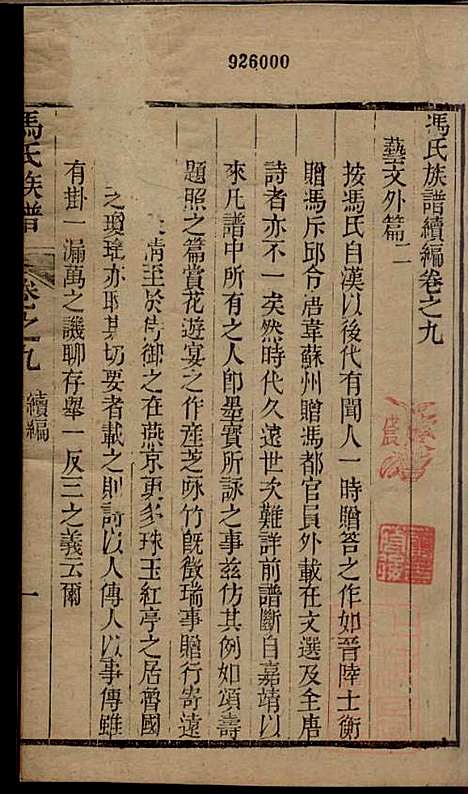 926000
馮氏族譜續編卷之九
藝文外篇二
按馮氏自漢以後代有聞人一時贈答之作如晉陸士衡
贈馮斥邱令唐韋蘇州贈馮都官員外載在文選及全唐
詩者亦不一矣然時代久遠世次難詳前譜斷自嘉靖以
來凡譜中所有之人卽墨寶所詠之事茲仿其例如頌壽
題照之篇賞花遊宴之作産芝咏竹旣徵瑞事贈行寄遠
情至於侍御之在燕京更多珠玉紅亭之居曾國
之瓊瑋亦取其切要者載之則詩以人傳人以事傳雖
有掛一漏萬之譏聊存舉一反三之義云爾
馮氏族譜 卷之九 續編 一